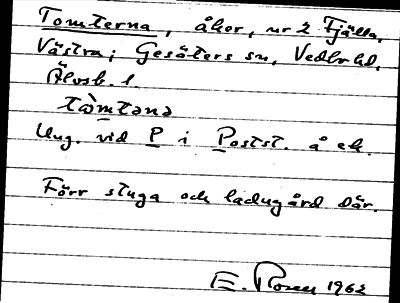 Tomterna, åker, nr 2 Fjälla,
Västra; Gesäters sn, Vedbo hd,
Älvsb. l.
tòmtənə
Ung. vid P i Postst. å ek.
Förr stuga och ladugård där.
E. 1962